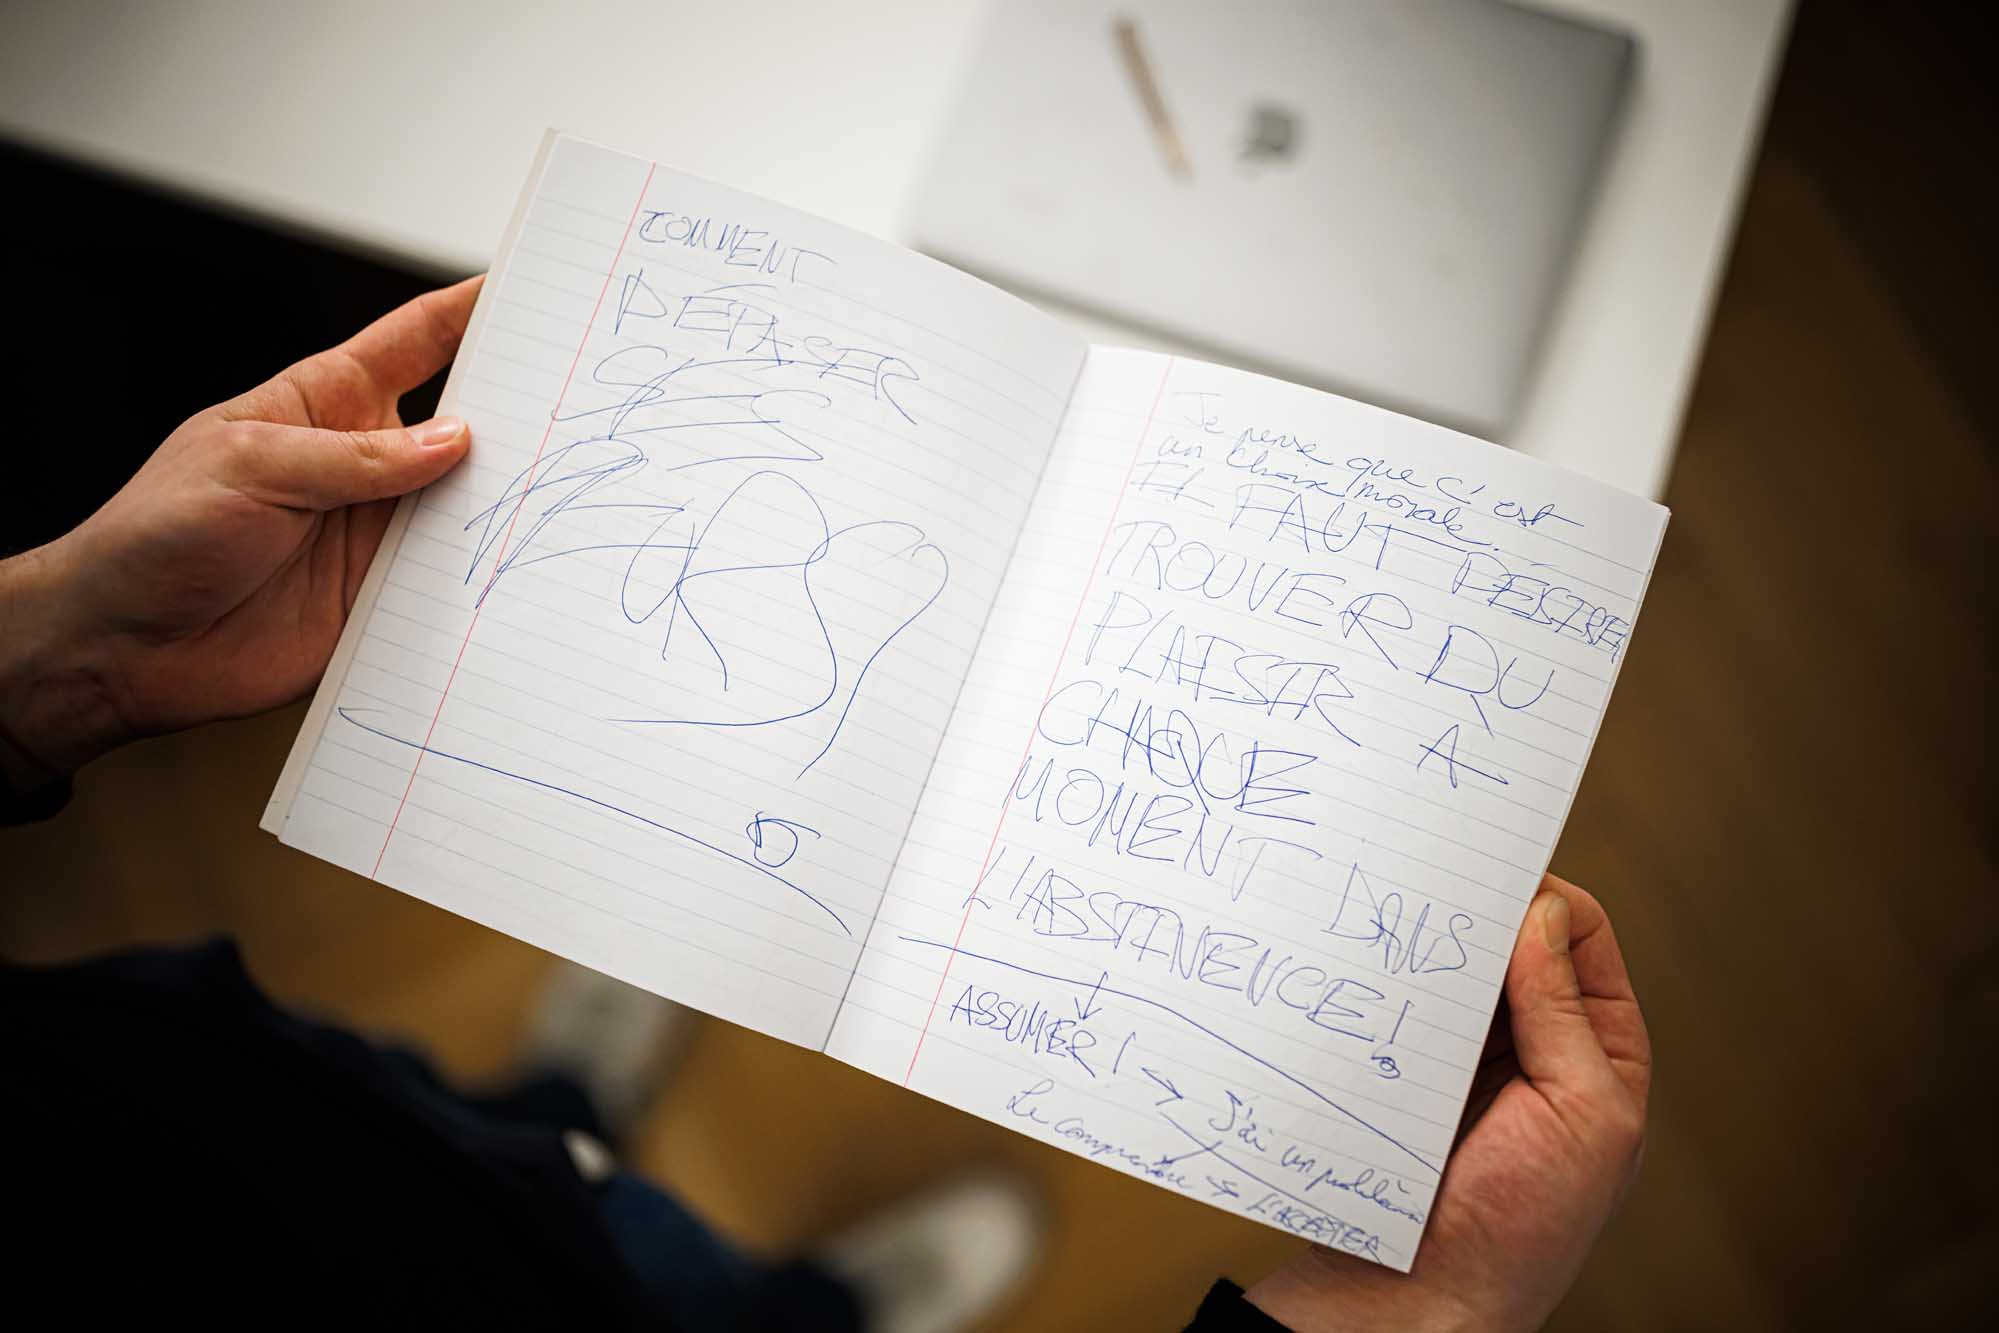 COMMENT
DÉPASER
SES
PEURS ?
Je pense que c'est
un choix morale.
IL FAUT DÉSIRER
TROUVER DU
PLAISIR À
CHAQUE
MOMENT DANS
L'ABSTINENCE !
ASSUMER ! → j'ai un problème
Le comprendre → L'ACCEPTER